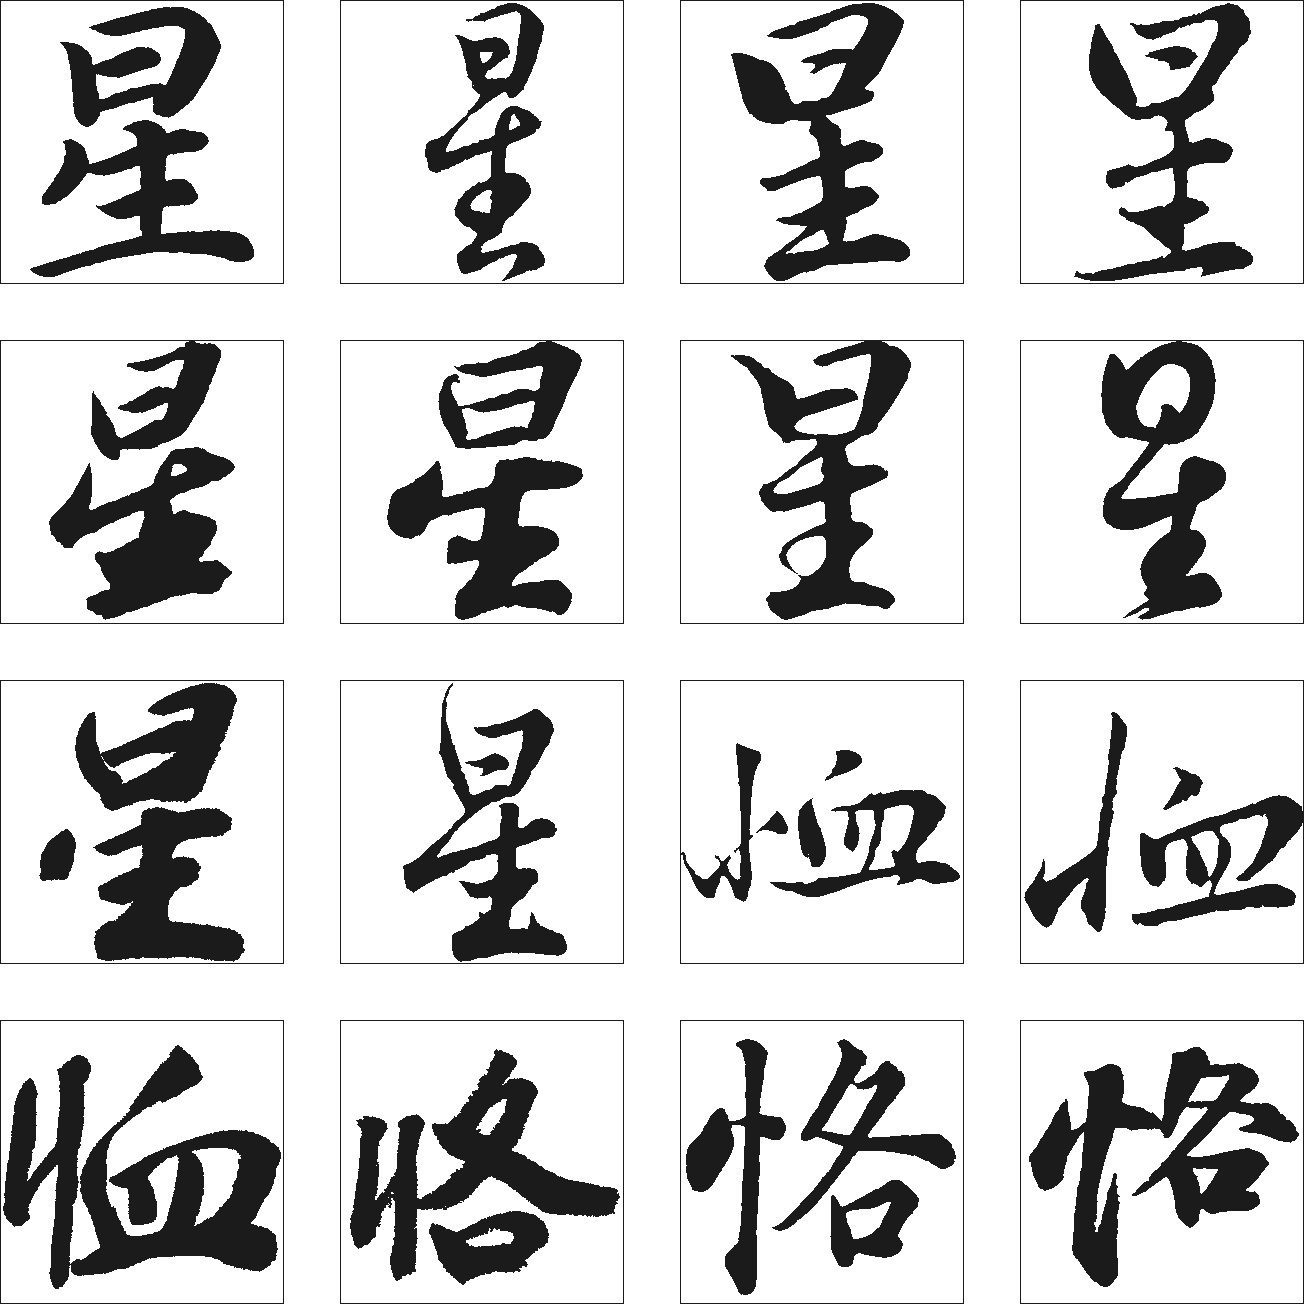 星星星星
星星星星
星星恤恤
恤恪恪恪